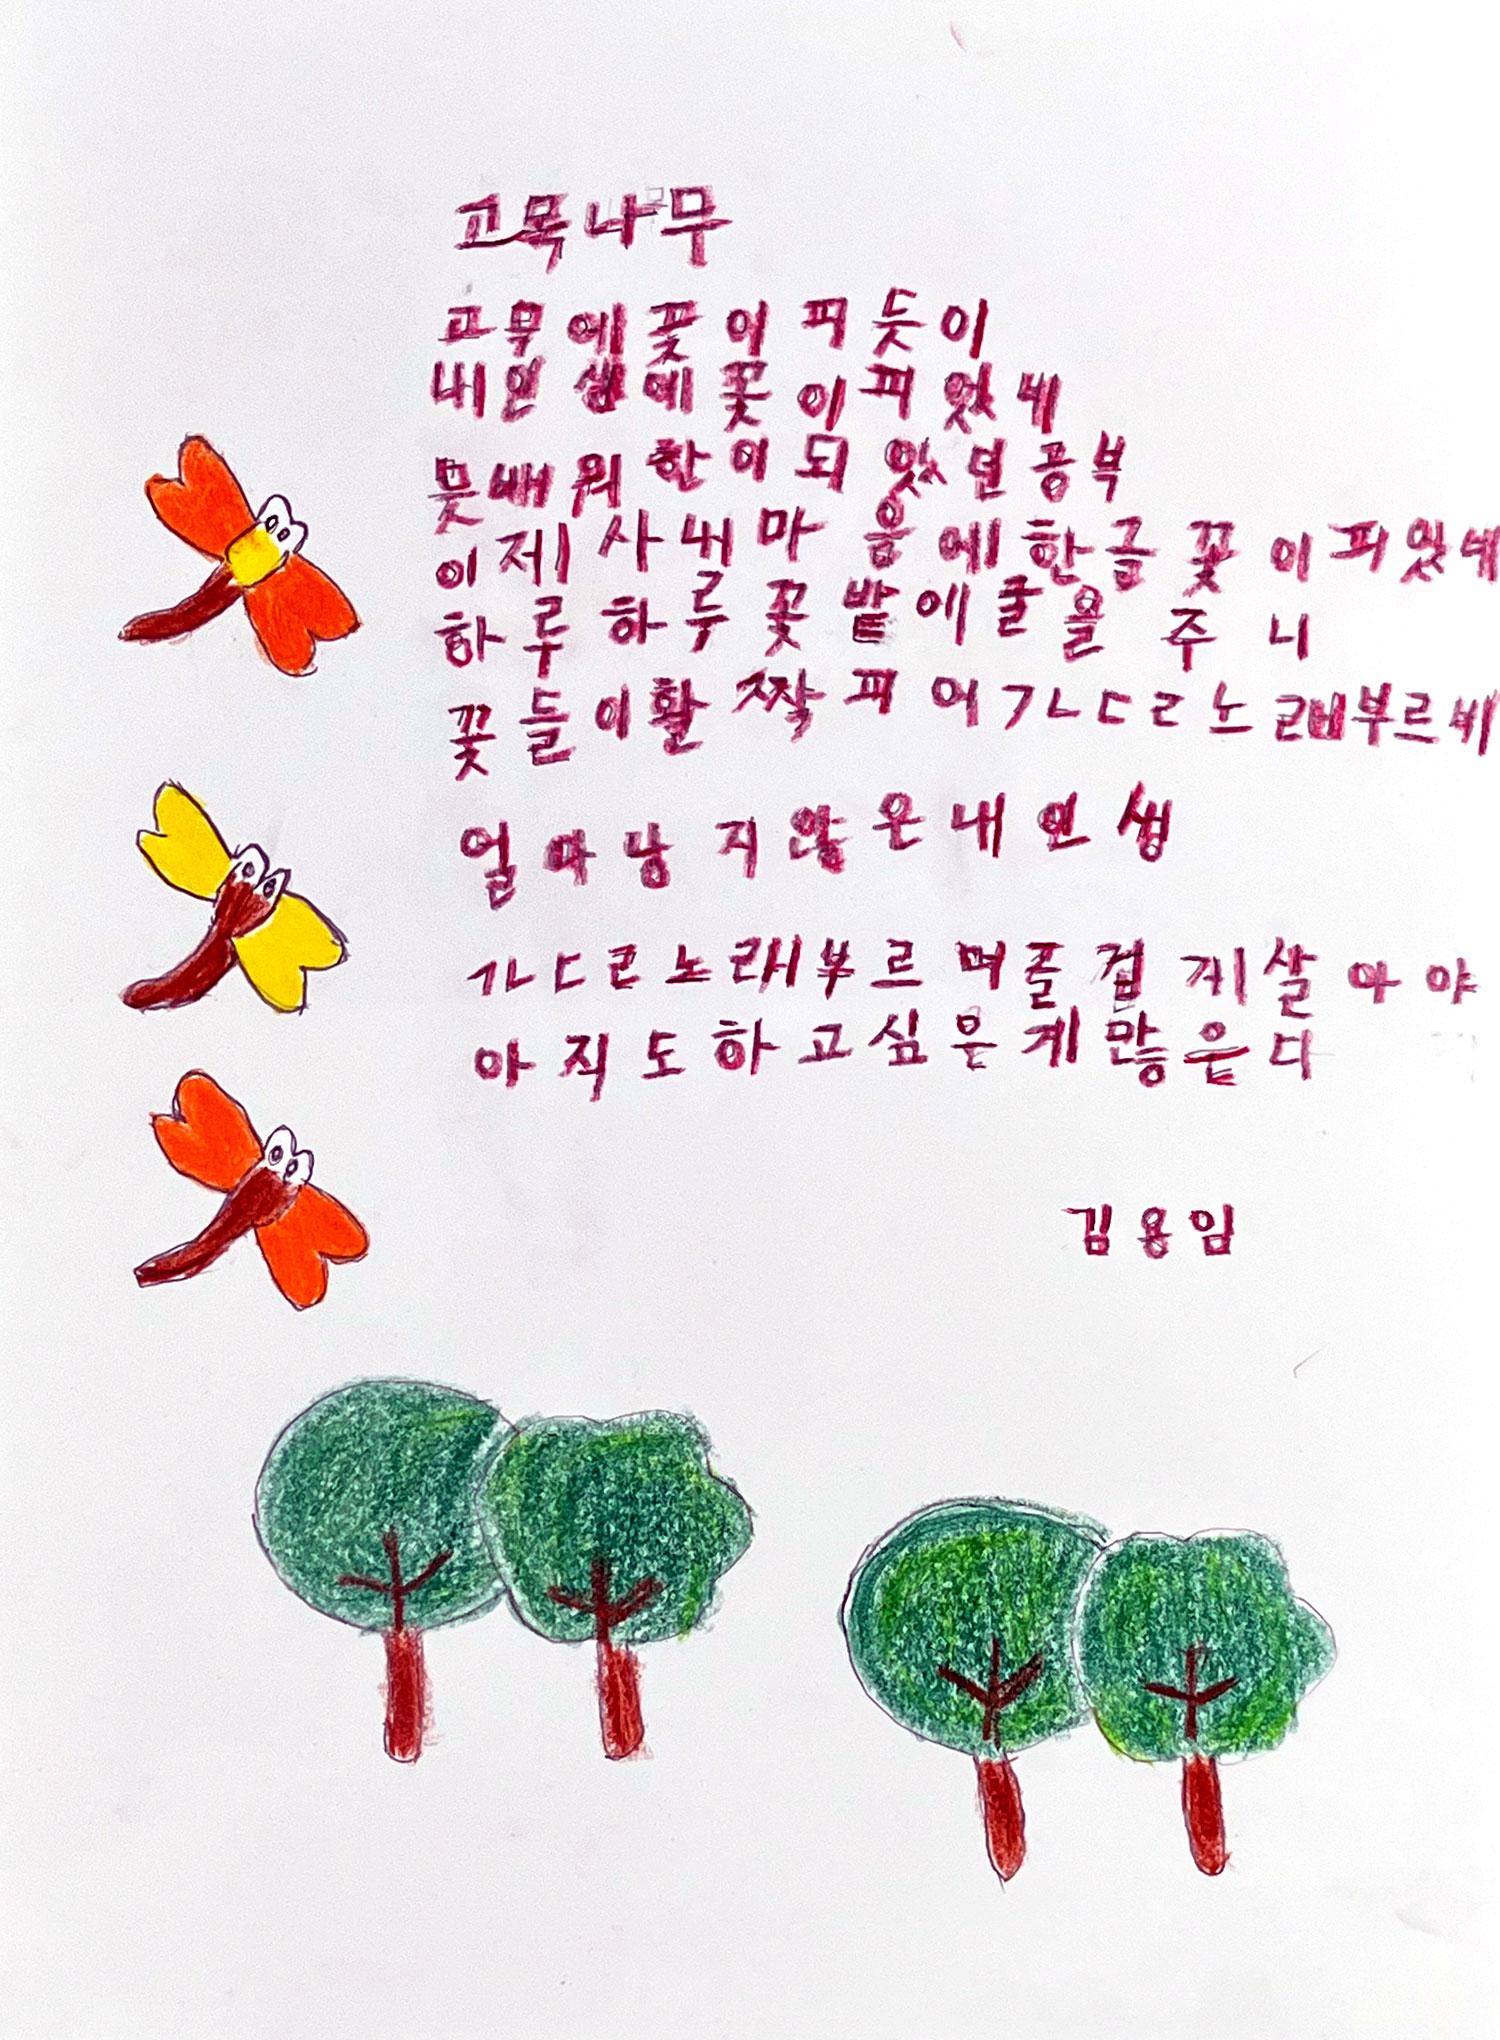 고목나무
고목에 꽃이 피듯이
내 인생에 꽃이 피었네
못 배워 한이 되었던 공부
이제사 내 마음에 한글 꽃이 피었네
하루하루 꽃밭에 굴을 주니
꽃들이 활짝 피어 ㄱㄴㄷㄹ 노래 부르네
얼마 남지 않은 내 인생
ㄱㄴㄷㄹ 노래 부르며 즐겁게 살아야
아직도 하고 싶은 게 많은다
김용임